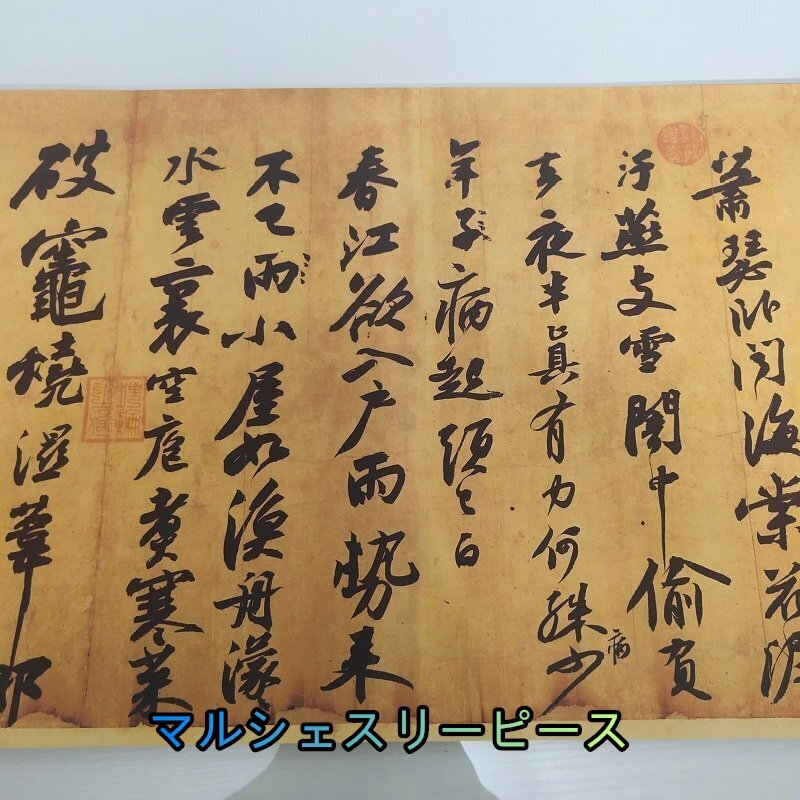 蕭瑟臥聞海棠花泥
汙燕支雪闇中偷負
去夜半真有力何殊少
病
年子病起頭已白
春江欲入戶雨勢來
不已雨小屋如漁舟濛
水雲裏空庖煮寒菜
破竈燒濕葦那
マルシェスリーピース